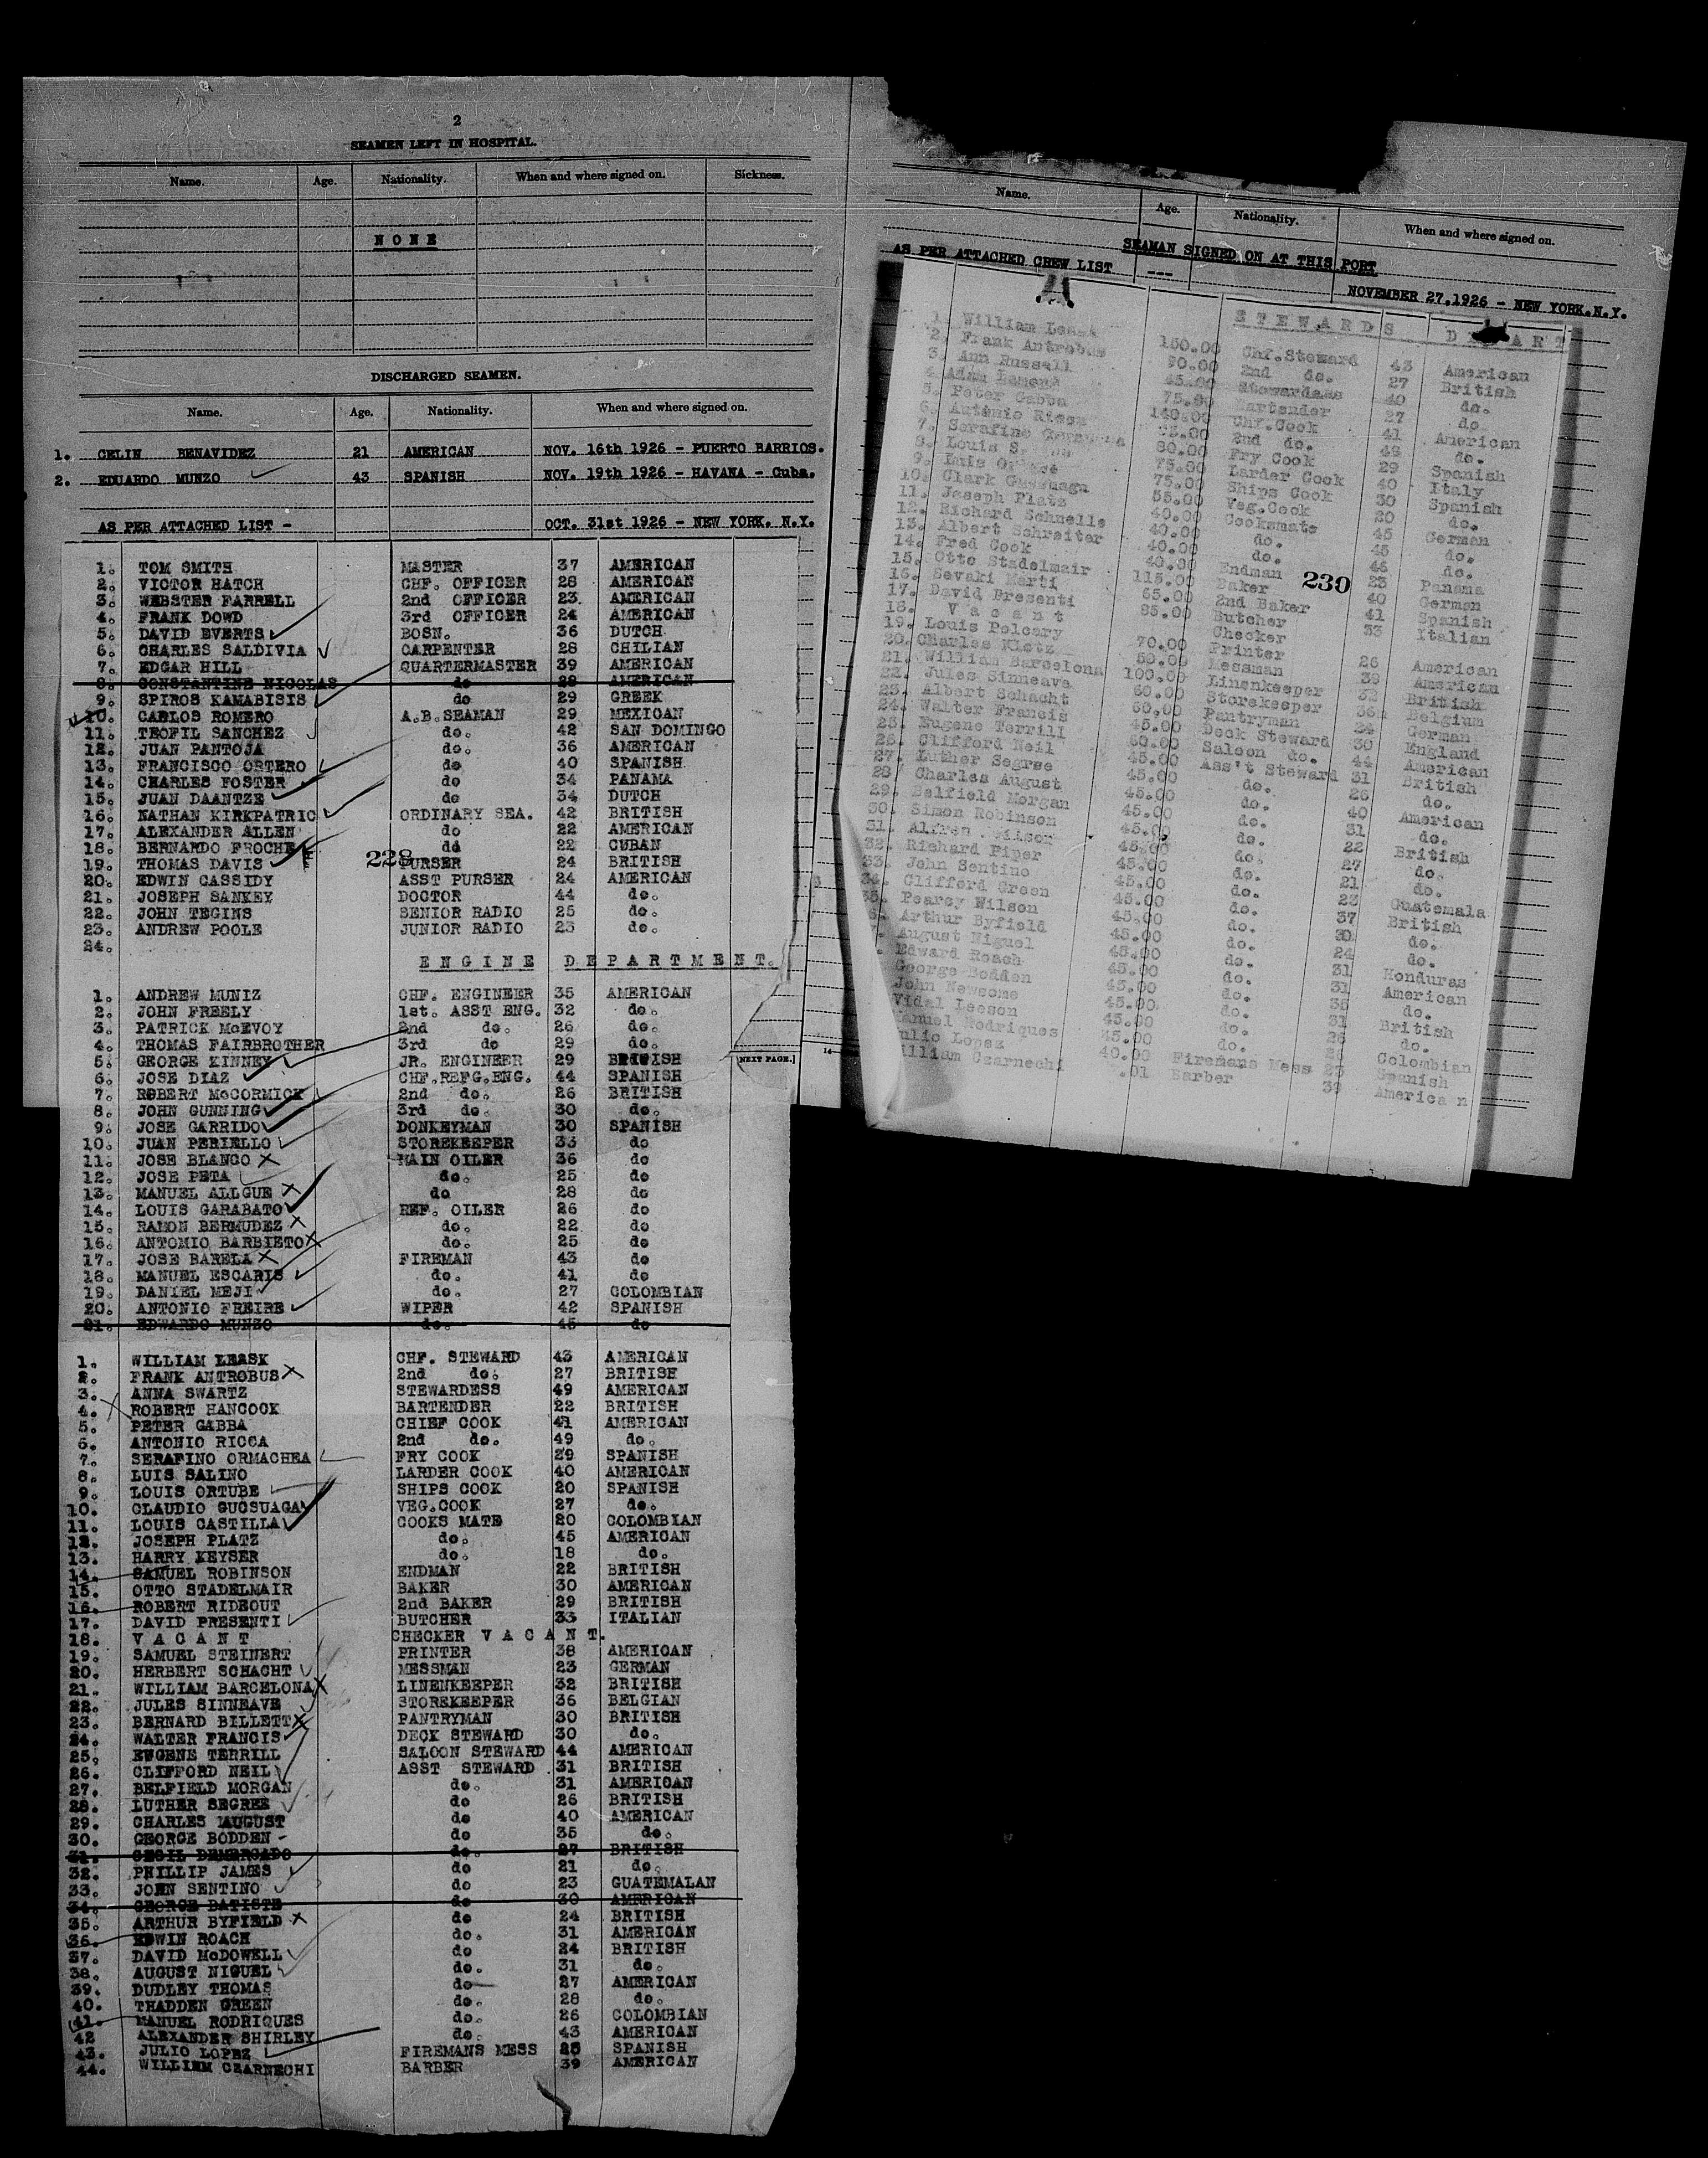 2
SEAMEN LEFT IN HOSPITAL.
Name. Age. Nationality. When and where signed on. Sickness.
NONE
DISCHARGED SEAMEN.
Name. Age. Nationality. When and where signed on.
1. CELIN BENAVIDEZ 21 AMERICAN NOV. 16th 1926 - PUERTO BARRIOS.
2. EDUARDO MUNZO 43 SPANISH NOV. 19th 1926 - HAVANA - Cuba.
AS PER ATTACHED LIST - OCT. 31st 1926 - NEW YORK. N.Y.
1. TOM SMITH MASTER 37 AMERICAN
2. VICTOR HATCH CHF. OFFICER 28 AMERICAN
3. WEBSTER FARRELL 2nd OFFICER 23 AMERICAN
4. FRANK DOWD 3rd OFFICER 24 AMERICAN
5. DAVID EVERTS BOSN. 36 DUTCH
6. CHARLES SALDIVIA CARPENTER 28 CHILIAN
7. EDGAR HILL QUARTERMASTER 39 AMERICAN
8. CONSTANTINE NICOLAS do 28 AMERICAN
9. SPIROS KAMABISIS do 29 GREEK
10. CARLOS ROMERO A.B.SEAMAN 29 MEXICAN
11. TEOFIL SANCHEZ do. 42 SAN DOMINGO
12. JUAN PANTOJA do. 36 AMERICAN
13. FRANCISCO ORTERO do 40 SPANISH
14. CHARLES FOSTER do 34 PANAMA
15. JUAN DAANTZE do 34 DUTCH
16. NATHAN KIRKPATRIC ORDINARY SEA. 42 BRITISH
17. ALEXANDER ALLEN do 22 AMERICAN
18. BERNARDO FROCHE do 22 CUBAN
19. THOMAS DAVIS 228 PURSER 24 BRITISH
20. EDWIN CASSIDY ASST PURSER 24 AMERICAN
21. JOSEPH SANKEY DOCTOR 44 do.
22. JOHN TEGINS SENIOR RADIO 25 do.
23. ANDREW POOLE JUNIOR RADIO 23 do.
24.
ENGINE DEPARTMENT.
1. ANDREW MUNIZ CHF. ENGINEER 35 AMERICAN
2. JOHN FREELY 1st. ASST ENG. 32 do.
3. PATRICK McEVOY 2nd do. 26 do.
4. THOMAS FAIRBROTHER 3rd do 29 do.
5. GEORGE KINNEY JR. ENGINEER 29 BRITISH
6. JOSE DIAZ CHF.REFG.ENG. 44 SPANISH
7. ROBERT McCORMICK 2nd do. 26 BRITISH
8. JOHN GUNNING 3rd do. 30 do.
9. JOSE GARRIDO DONKEYMAN 30 SPANISH
10. JUAN PERIELLO STOREKEEPER 33 do
11. JOSE BLANCO MAIN OILER 36 do
12. JOSE PETA do. 25 do
13. MANUEL ALLGUE do 28 do
14. LOUIS GARABATO REF. OILER 26 do
15. RAMON BERMUDEZ do. 22 do
16. ANTOMIO BARBIETO do. 25 do
17. JOSE BARELA FIREMAN 43 do
18. MANUEL ESCARIS do. 41 do
19. DANIEL MEJI do. 27 COLOMBIAN
20. ANTONIO FREIRE WIPER 42 SPANISH
21. EDWARDO MUNZO do. 45 do
1. WILLIAM LEASK CHF. STEWARD 43 AMERICAN
2. FRANK ANTROBUS 2nd do. 27 BRITISH
3. ANNA SWARTZ STEWARDESS 49 AMERICAN
4. ROBERT HANCOCK BARTENDER 22 BRITISH
5. PETER GABBA CHIEF COOK 41 AMERICAN
6. ANTONIO RICCA 2nd do. 49 do.
7. SERAFINO ORMACHEA FRY COOK 29 SPANISH
8. LUIS SALINO LARDER COOK 40 AMERICAN
9. LOUIS ORTUBE SHIPS COOK 20 SPANISH
10. CLAUDIO GUOSUAGA VEG.COOK 27 do.
11. LOUIS CASTILLA COOKS MATE 20 COLOMBIAN
12. JOSEPH PLATZ do. 45 AMERICAN
13. HARRY KEYSER do. 18 do.
14. SAMUEL ROBINSON ENDMAN 22 BRITISH
15. OTTO STADELMAIR BAKER 30 AMERICAN
16. ROBERT RIDEOUT 2nd BAKER 29 BRITISH
17. DAVID PRESENTI BUTCHER 33 ITALIAN
18. VACANT CHECKER VACANT.
19. SAMUEL STEINERT PRINTER 38 AMERICAN
20. HERBERT SCHACHT MESSMAN 23 GERMAN
21. WILLIAM BARCELONA LINENKEEPER 32 BRITISH
22. JULES SINNEAVE STOREKEEPER 36 BELGIAN
23. BERNARD BILLETT PANTRYMAN 30 BRITISH
24. WALTER FRANCIS DECK STEWARD 30 do.
25. EUGENE TERRILL SALOON STEWARD 44 AMERICAN
26. CLIFFORD NEIL ASST STEWARD 31 BRITISH
27. BELFIELD MORGAN do. 31 AMERICAN
28. LUTHER SEGREE do 26 BRITISH
29. CHARLES AUGUST do 40 AMERICAN
30. GEORGE BODDEN do 35 do.
31. CECIL DEMERCADO do. 27 BRITISH
32. PHILLIP JAMES do 21 do.
33. JOHN SENTINO do 23 GUATEMALAN
34. GEORGE BATISTE do 30 AMERICAN
35. ARTHUR BYFIELD do 24 BRITISH
36. EDWIN ROACH do. 31 AMERICAN
37. DAVID McDOWELL do 24 BRITISH
38. AUGUST NIGUEL do. 31 do.
39. DUDLEY THOMAS do 27 AMERICAN
40. THADDEN GREEN do. 28 do.
41. MANUEL RODRIQUES do. 26 COLOMBIAN
42 ALEXANDER SHIRLEY do. 43 AMERICAN
43. JULIO LOPEZ FIREMANS MESS 25 SPANISH
44. WILLIAM CZARNECHI BARBER 39 AMERICAN
[NEXT PAGE.]
Name. Age. Nationality. When and where signed on.
SEAMAN SIGNED ON AT THIS PORT
AS PER ATTACHED CREW LIST --- NOVEMBER 27,1926 - NEW YORK.N.Y.
STEWARDS
1. William Leask 150.00 Chf.Steward 43 American
2. Frank Antrobus 90.00 2nd do. 27 British
3. Ann Russell 45.00 Stewardess 40 do.
4. Adam Lamont 75.00 Bartender 27 do
5. Peter Gabba 140.00 Chf.Cook 41 American
6. Antonio Ricca 2nd do. 49 do.
7. Serafino 80.00 Fry Cook 29 Spanish
8. Louis 75.00 Larder Cook 40 Italy
9. Luis 75.00 Ships Cook 30 Spanish
10. Clark Guosuaga 55.00 Veg.Cook 20 do.
11. Joseph Platz 40.00 Cooksmate 45 German
12. Richard Schnelle 40.00 do. 45 do.
13. Albert Schreiter 40.00 do. 46 do.
14. Fred Cook 40.00 Endman 23 Panama
15. Otto Stadelmair 115.00 Baker 40 German
16. Sevaki Marti 65.00 2nd Baker 41 Spanish
17. David Presenti 85.00 Butcher 33 Italian
18. Vacant Checker
230
19. Louis Polcary 70.00 Printer 26 American
20. Charles Klotz 50.00 Messman 39 American
21. William Barcelona 100.00 Linenkeeper 32 British
22. Jules Sinneave 60.00 Storekeeper 36 Belgium
23. Albert Schacht 60.00 Pantryman 24 German
24. Walter Francis 45.00 Deck Steward 30 England
25. Eugene Terrill 60.00 Saloon do. 44 American
26. Clifford Neil 45.00 Ass't Steward 31 British
27. Luther Segree 45.00 do. 26 do.
28 Charles August 45.00 do. 40 American
29. Belfield Morgan 45.00 do. 31 do.
30. Simon Robinson 45.00 do. 22 British
31. 45.00 do. 27 do.
32. Richard Piper 45.00 do. 21 do.
33. John Sentino 45.00 do. 23 Guatemala
34. Clifford Green 45.00 do. 37 British
35. Pearcy Wilson 45.00 do. 30 do.
Arthur Byfield 45.00 do. 24 do.
August Niguel 45.00 do. 31 Honduras
Edward Roach 45.00 do. 31 American
George Bodden 45.00 do. 35 do.
John Newsome 45.00 do. 31 British
Vidal Leeson 45.00 do. 26 do.
Manuel Rodriques 45.00 do. Colombian
Julio Lopez 40.00 Firemans Mess 23 Spanish
William Czarnechi .01 Barber 39 American